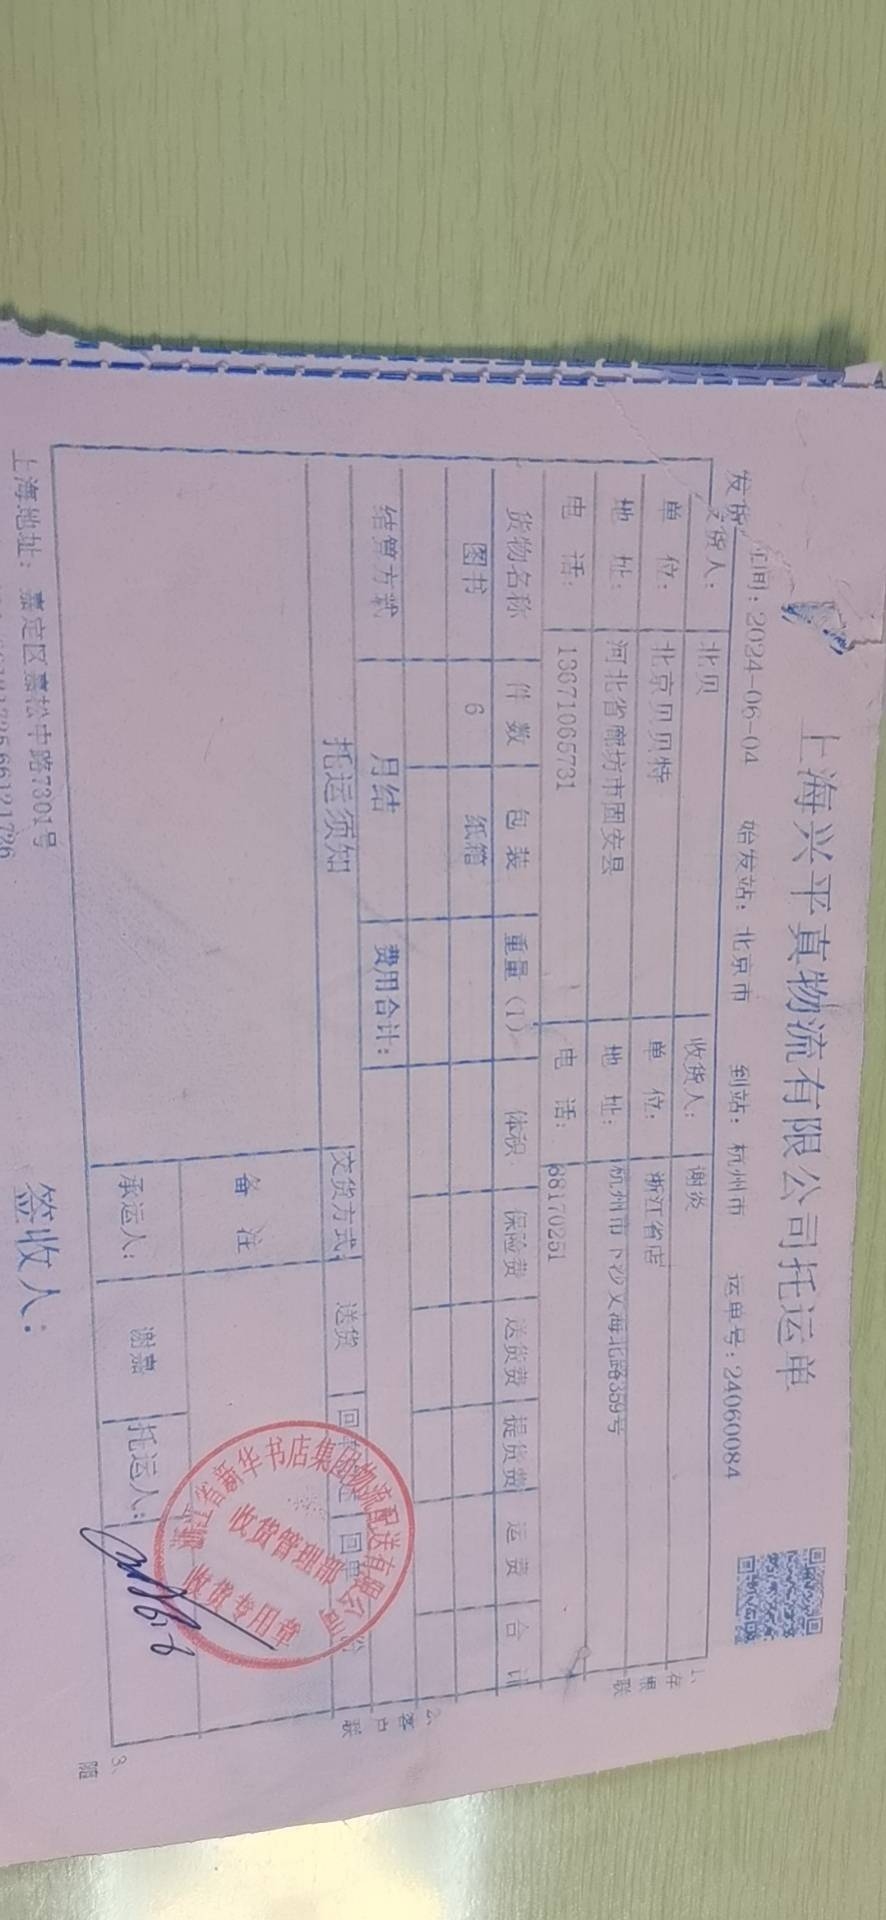 上海兴平真物流有限公司托运单
发货 时间：2024-06-04 始发站：北京市 到站：杭州市 运单号：24060084
发货人： 北贝 收货人： 谢炎
单 位： 北京贝贝特 单 位： 浙江省店
地 址： 河北省廊坊市固安县 地 址： 杭州市下沙文海北路359号
电 话： 13671065731 电 话： 68170251
货物名称 件 数 包 装 重量（T） 体积 保险费 送货费 提货费 运 费 合 计
图书 6 纸箱
结算方式 月结 费用合计：
托运须知 交货方式： 送货 回单 回单 份
备 注
承运人： 谢嘉 托运人：
浙江省新华书店集团物流配送有限公司
收货管理部
收货专用章
上海地址： 嘉定区嘉松中路7301号
签收人：
1、存根联
2、客户联
3、